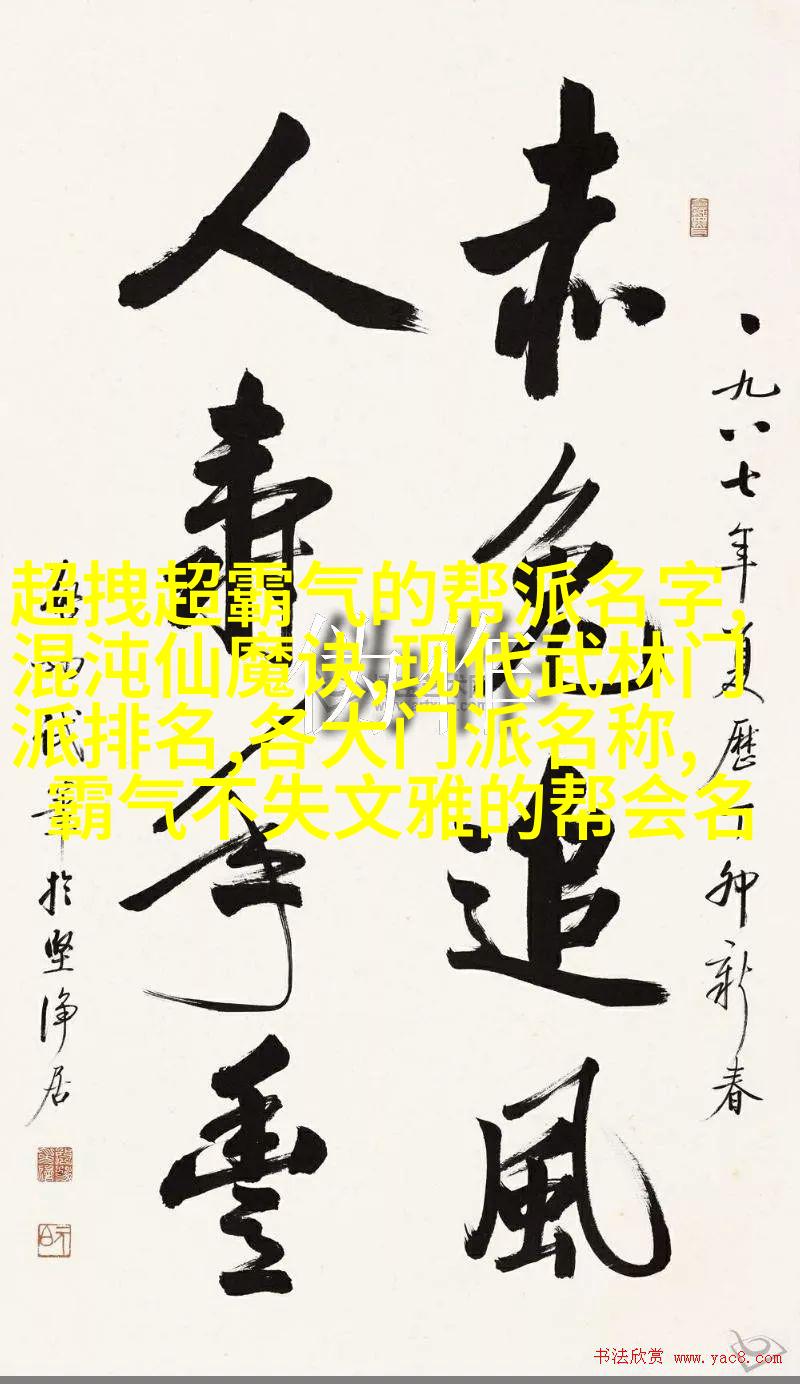 赤兔追風
人壽年豐
一九八七年夏歷丁卯新春
於堅淨居
超拽超霸气的帮派名字,
混沌仙魔诀,现代武林门
派排名,各大门派名称,
霸气不失文雅的帮会名
书法欣赏 www.yac8.com